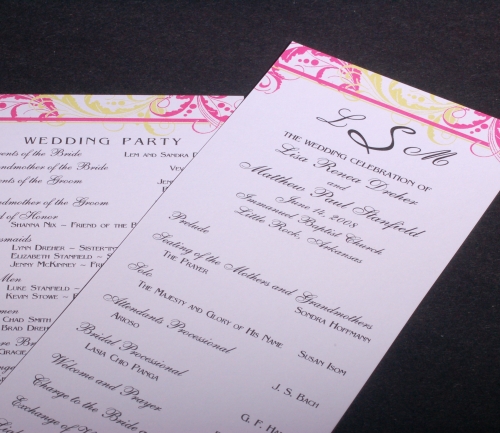 WEDDING PARTY
of the Bride LEN and SANDRA
of the Bride
of the Groom
of the Groom
of Honor
SHANNA NIX ~ FRIEND OF THE
LYNN DREHER ~
ELIZABETH STANFIELD ~
JENNY MCKINNEY ~ FRIEND
LUKE STANFIELD ~
KEVIN STOWE ~
CHAD SMITH
BRAD
GRACIE
L S M
THE WEDDING CELEBRATION OF
Lisa Renea Dreher
and
Matthew Paul Stanfield
June 14, 2008
Immanuel Baptist Church
Little Rock, Arkansas
Prelude
Seating of the Mothers and Grandmothers
THE PRAYER SONDRA HOFFMANN
Solo
THE MAJESTY AND GLORY OF HIS NAME SUSAN ISOM
Attendants Processional
ARIOSO J. S. BACH
Bridal Processional
LASIA CHIO PIANGA G. F.
Welcome and Prayer
Charge to the Bride
Exchange of